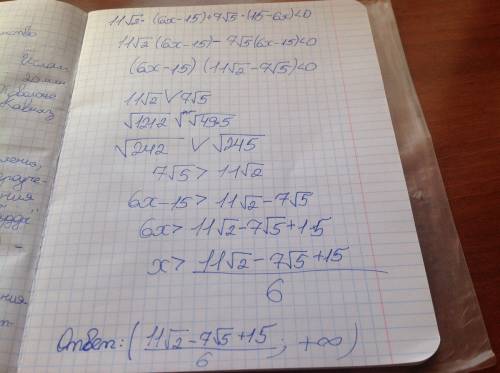 11√2 · (6x-15)+7√5 · (15-6x)<0
11√2 · (6x-15) - 7√5(6x-15)<0
(6x-15) (11√2-7√5)<0
11√2 ∨ 7√5
√121·2 ∨ √49·5
√242 ∨ √245
7√5 > 11√2
6x-15 > 11√2-7√5
6x > 11√2-7√5+15
x > (11√2-7√5+15)/6
Ответ: ( (11√2-7√5+15)/6 ; +∞)